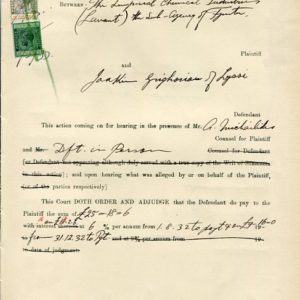 BETWEEN: The Imperial Chemical Industries
(Levant) the Sub-Agency of
Plaintiff
and
of Lyssi
Defendant
This action coming on for hearing in the presence of Mr. A.
Counsel for Plaintiff
and Mr. Dft. in Person
Counsel for Defendant
(or Defendant not appearing although duly served with a true copy of the Writ of Summons
in this action); and upon hearing what was alleged by or on behalf of the Plaintiff,
(or of the parties respectively)
This Court DOTH ORDER AND ADJUDGE that the Defendant do pay to the
Plaintiff the sum of £25-18-6
with interest at 6 % per annum from 1.8.32 to
from 31.12.32 to and at 9% per annum from 19
in date of judgment.